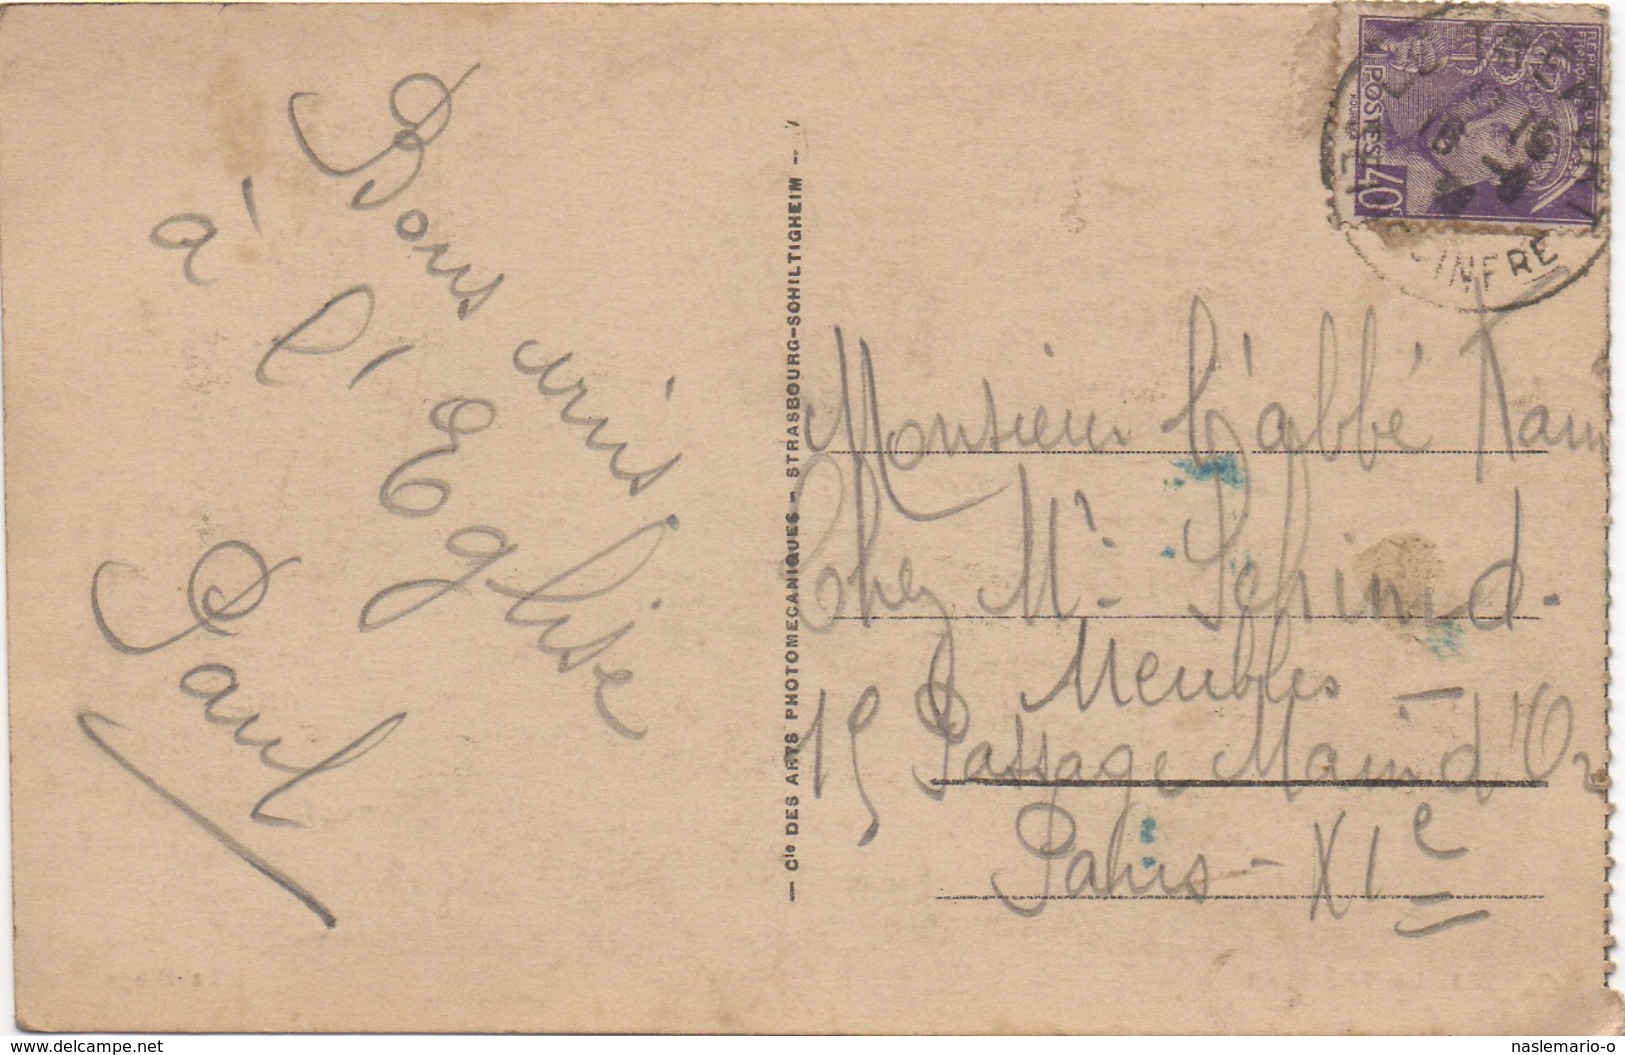 Bons amis
à
l'Eglise
Paul
— Cie DES ARTS PHOTOMECANIQUES — STRASBOURG-SCHILTIGHEIM —
REPUBLIQUE
FRANCAISE
POSTES
40c
INFRE
Monsieur l'abbé
Chez Mr. Schmid.
Meubles —
19 Passage Main d'Or
Paris - XIe
www.delcampe.net
naslemario-o